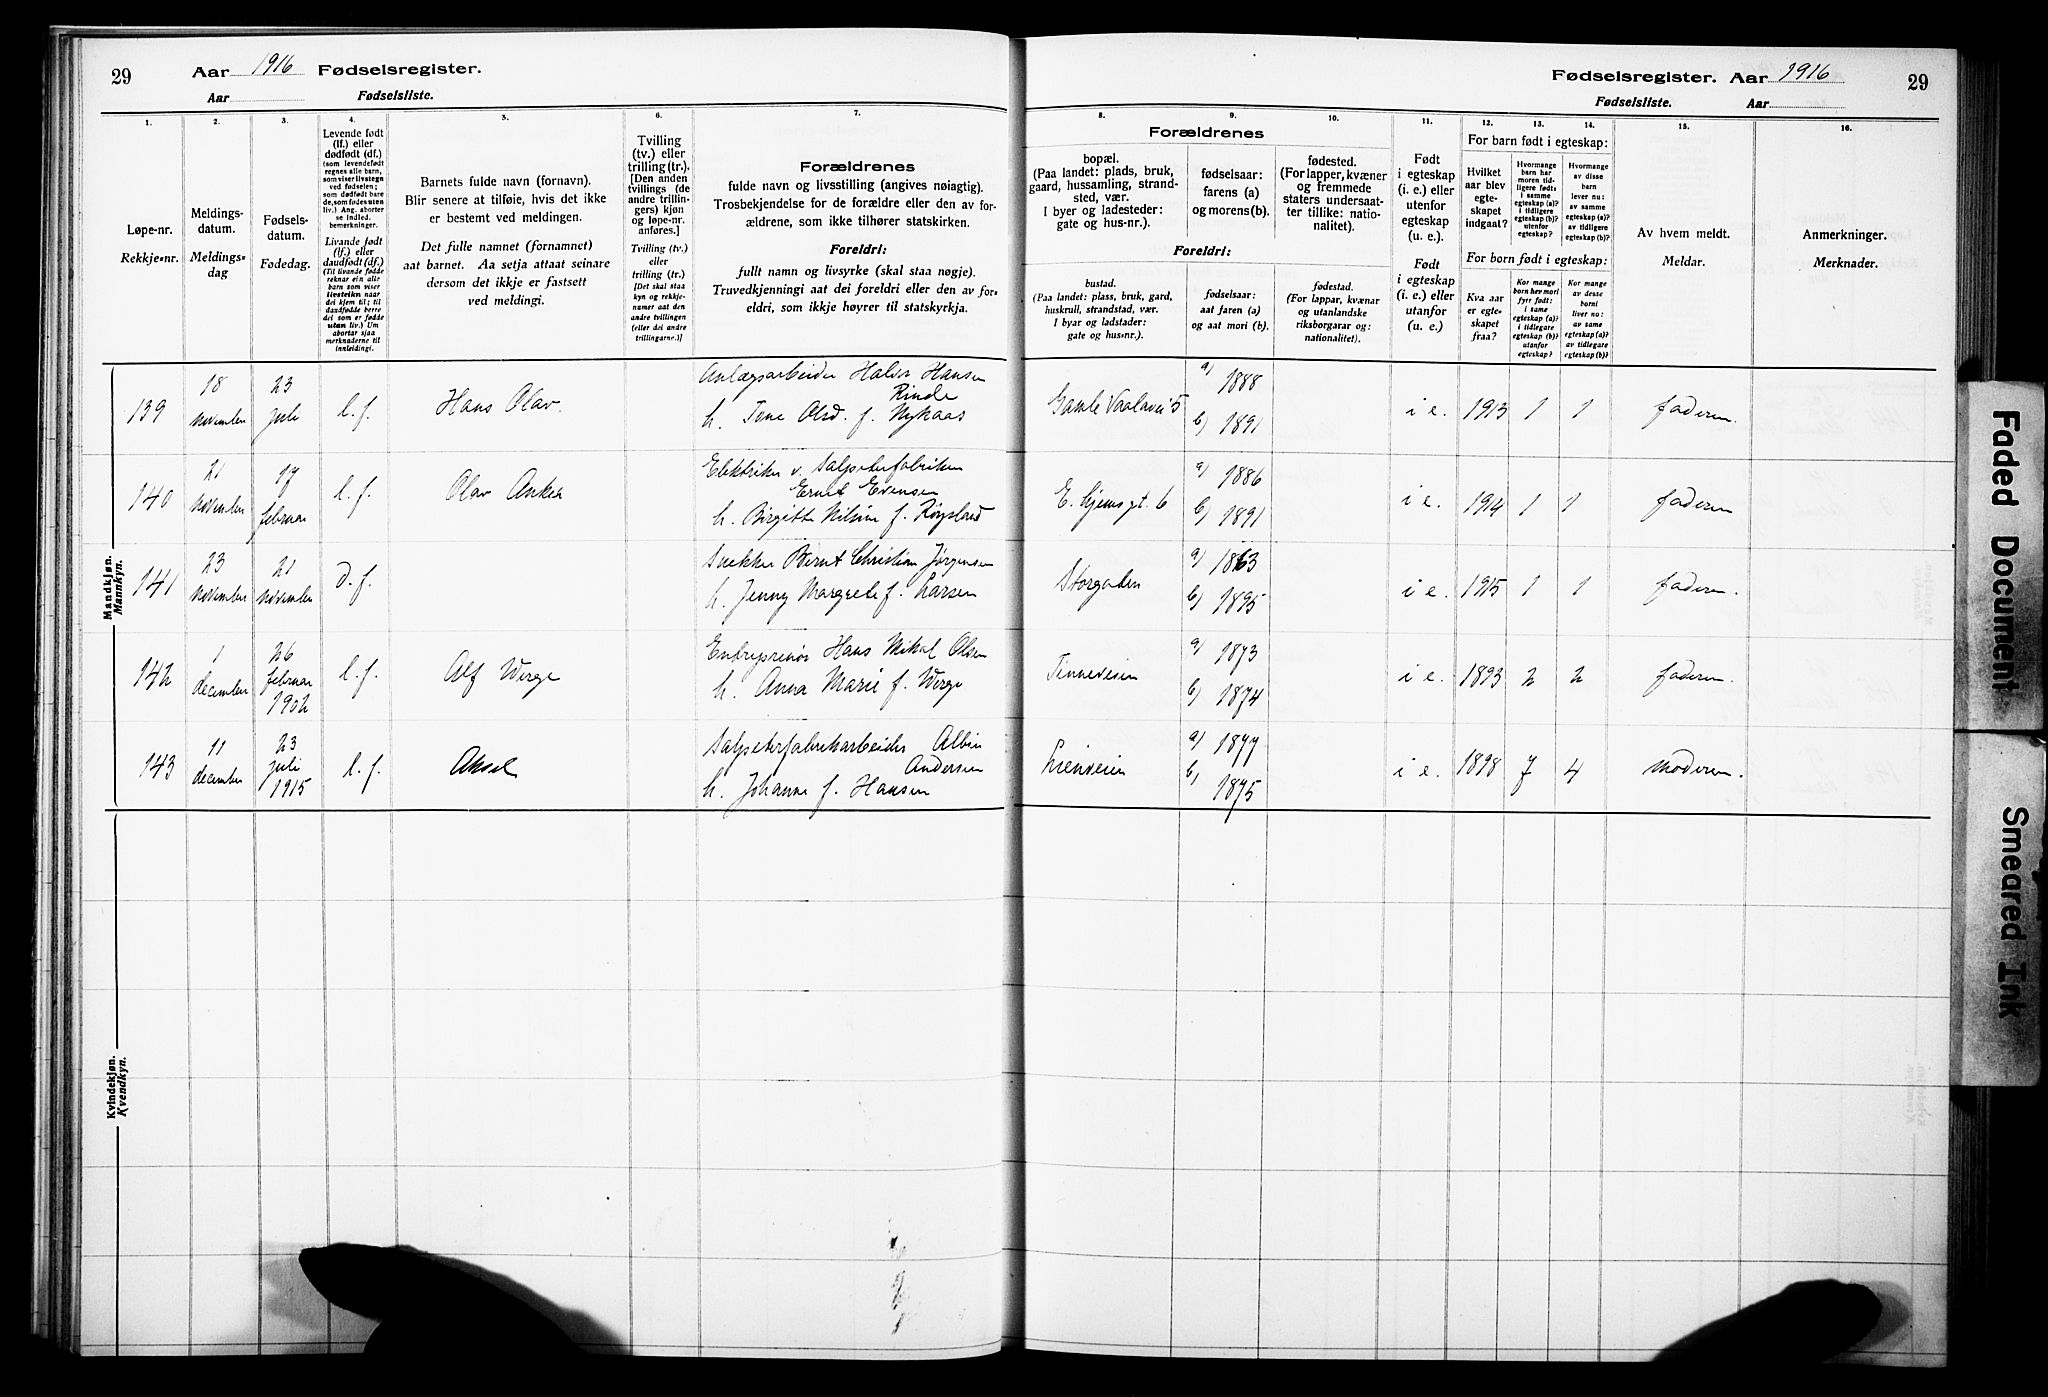 29 Aar 1916 Fødselsregister.
Aar Fødselsliste.
1.
Løpe-nr.
Rekkje-nr.
2.
Meldings-
datum.
Meldings-
dag
3.
Fødsels-
datum.
Fødedag.
4.
Levende født
(lf.) eller
dødfødt (df.)
(som levendefødt
regnes alle barn,
som viser livstegn
ved fødselen;
som dødfødt bare
de, som fødes uten
liv.) Ang. aborter
se indled.
bemerkninger.
Livande født
(lf.) eller
daudfødt (df.)
(Til livande fødde
reknar ein alle
barn som viser
livsteikn naar
dei kjem til; til
daudfødde berre
dei som er fødde
utan liv.) Um
abortar sjaa
merknaderne til
innleidingi.
5.
Barnets fulde navn (fornavn).
Blir senere at tilføie, hvis det ikke
er bestemt ved meldingen.
Det fulle namnet (fornamnet)
aat barnet. Aa setja attaat seinare
dersom det ikkje er fastsett
ved meldingi.
6.
Tvilling
(tv.) eller
trilling (tr.).
[Den anden
tvillings (de
andre trillin-
gers) kjøn
og løpe-nr.
anføres.]
Tvilling (tv.)
eller
trilling (tr.)
[Det skal staa
kyn og rekkje-
numer aat den
andre tvillingen
(eller dei andre
trillingarne.)]
7.
Forældrenes
fulde navn og livsstilling (angives nøiagtig).
Trosbekjendelse for de forældre eller den av for-
ældrene, som ikke tilhører statskirken.
Foreldri:
fullt namn og livsyrke (skal staa nøgje).
Truvedkjenningi aat dei foreldri eller den av for-
eldri, som ikkje høyrer til statskyrkja.
Mandkjøn.
Mannkyn.
139
18
november
23
juli
l. f.
Hans Olav.
Anlægsarbeider Halvor Hansen
Rinde
h. Tone Olsd. f. Nykaas
140
21
november
17
februar
l. f.
Olav Anker
Elektriker v. Salpeterfabriken
Ernst Evensen
h. Birgitte Nilsine f.
141
23
november
21
november
D. f.
Snekker Bernt Christian Jørgensen
h. Jenny Margrete f. Larsen
142
1
december
26
februar
1902
l. f.
Alf Werge
Entreprenør Hans Mikal Olsen
h. Anna Marie f. Werge
143
11
december
23
juli
1915
l. f.
Aksel
Salpeterfabrikarbeider Albin
Andersen
h. Johanne f. Hansen
Kvindekjøn.
Kvendkyn.
Fødselsregister. Aar 1916 29
Fødselsliste. Aar
8. 9. 10.
Forældrenes
bopæl.
(Paa landet: plads, bruk,
gaard, hussamling, strand-
sted, vær.
I byer og ladesteder:
gate og hus-nr.).
fødselsaar:
farens (a)
og morens (b).
fødested.
(For lapper, kvæner
og fremmede
staters undersaat-
ter tillike: natio-
nalitet).
Foreldri:
bustad.
(Paa landet: plass, bruk, gard,
huskrull, strandstad, vær.
I byar og ladstader:
gate og hus-nr.).
fødselsaar:
aat faren (a)
og aat mori (b).
fødestad.
(For lappar, kvænar
og utanlandske
riksborgarar og:
nationalitet).
11.
Født
i egteskap
(i. e.) eller
utenfor
egteskap
(u. e.).
Født
i egteskap
(i. e.) eller
utanfor
(u. e.)
12. 13. 14.
For barn født i egteskap:
Hvilket
aar blev
egte-
skapet
indgaat?
Hvormange
barn har
moren tid-
ligere født:
i samme
egteskap (a)?
i tidligere
egteskap (b)?
utenfor
egteskap?
Hvormange
av disse
barn
lever nu:
av samme
egteskap (a)?
av tidligere
egteskap (b)?
For born født i egteskap:
Kva aar
er egte-
skapet
fraa?
Kor mange
born hev mori
fyrr født:
i same
egteskap (a)?
i tidlegare
egteskap (b)?
utanfor
egteskap?
Kor mange
av desse
borni
liver no:
av same
egteskap (a)?
av tidlegare
egteskap (b)?
15.
Av hvem meldt.
Meldar.
16.
Anmerkninger.
Merknader.
Gamle Vaalavei 5
a) 1888
b) 1891
i e. 1913 1 1 faderen.
E. Hjemsgt. 6
a) 1886
b) 1891
i e. 1914 1 1 faderen
Storgaden
a) 1863
b) 1895
i e. 1915 1 1 faderen.
Tinneveien
a) 1873
b) 1874
i e. 1893 2 2 faderen.
Lienveien
a) 1877
b) 1875
i e. 1898 7 4 moderen.
Faded Document
Smeared Ink